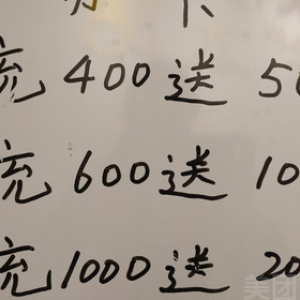 充400送50
充600送10
充1000送20
美团